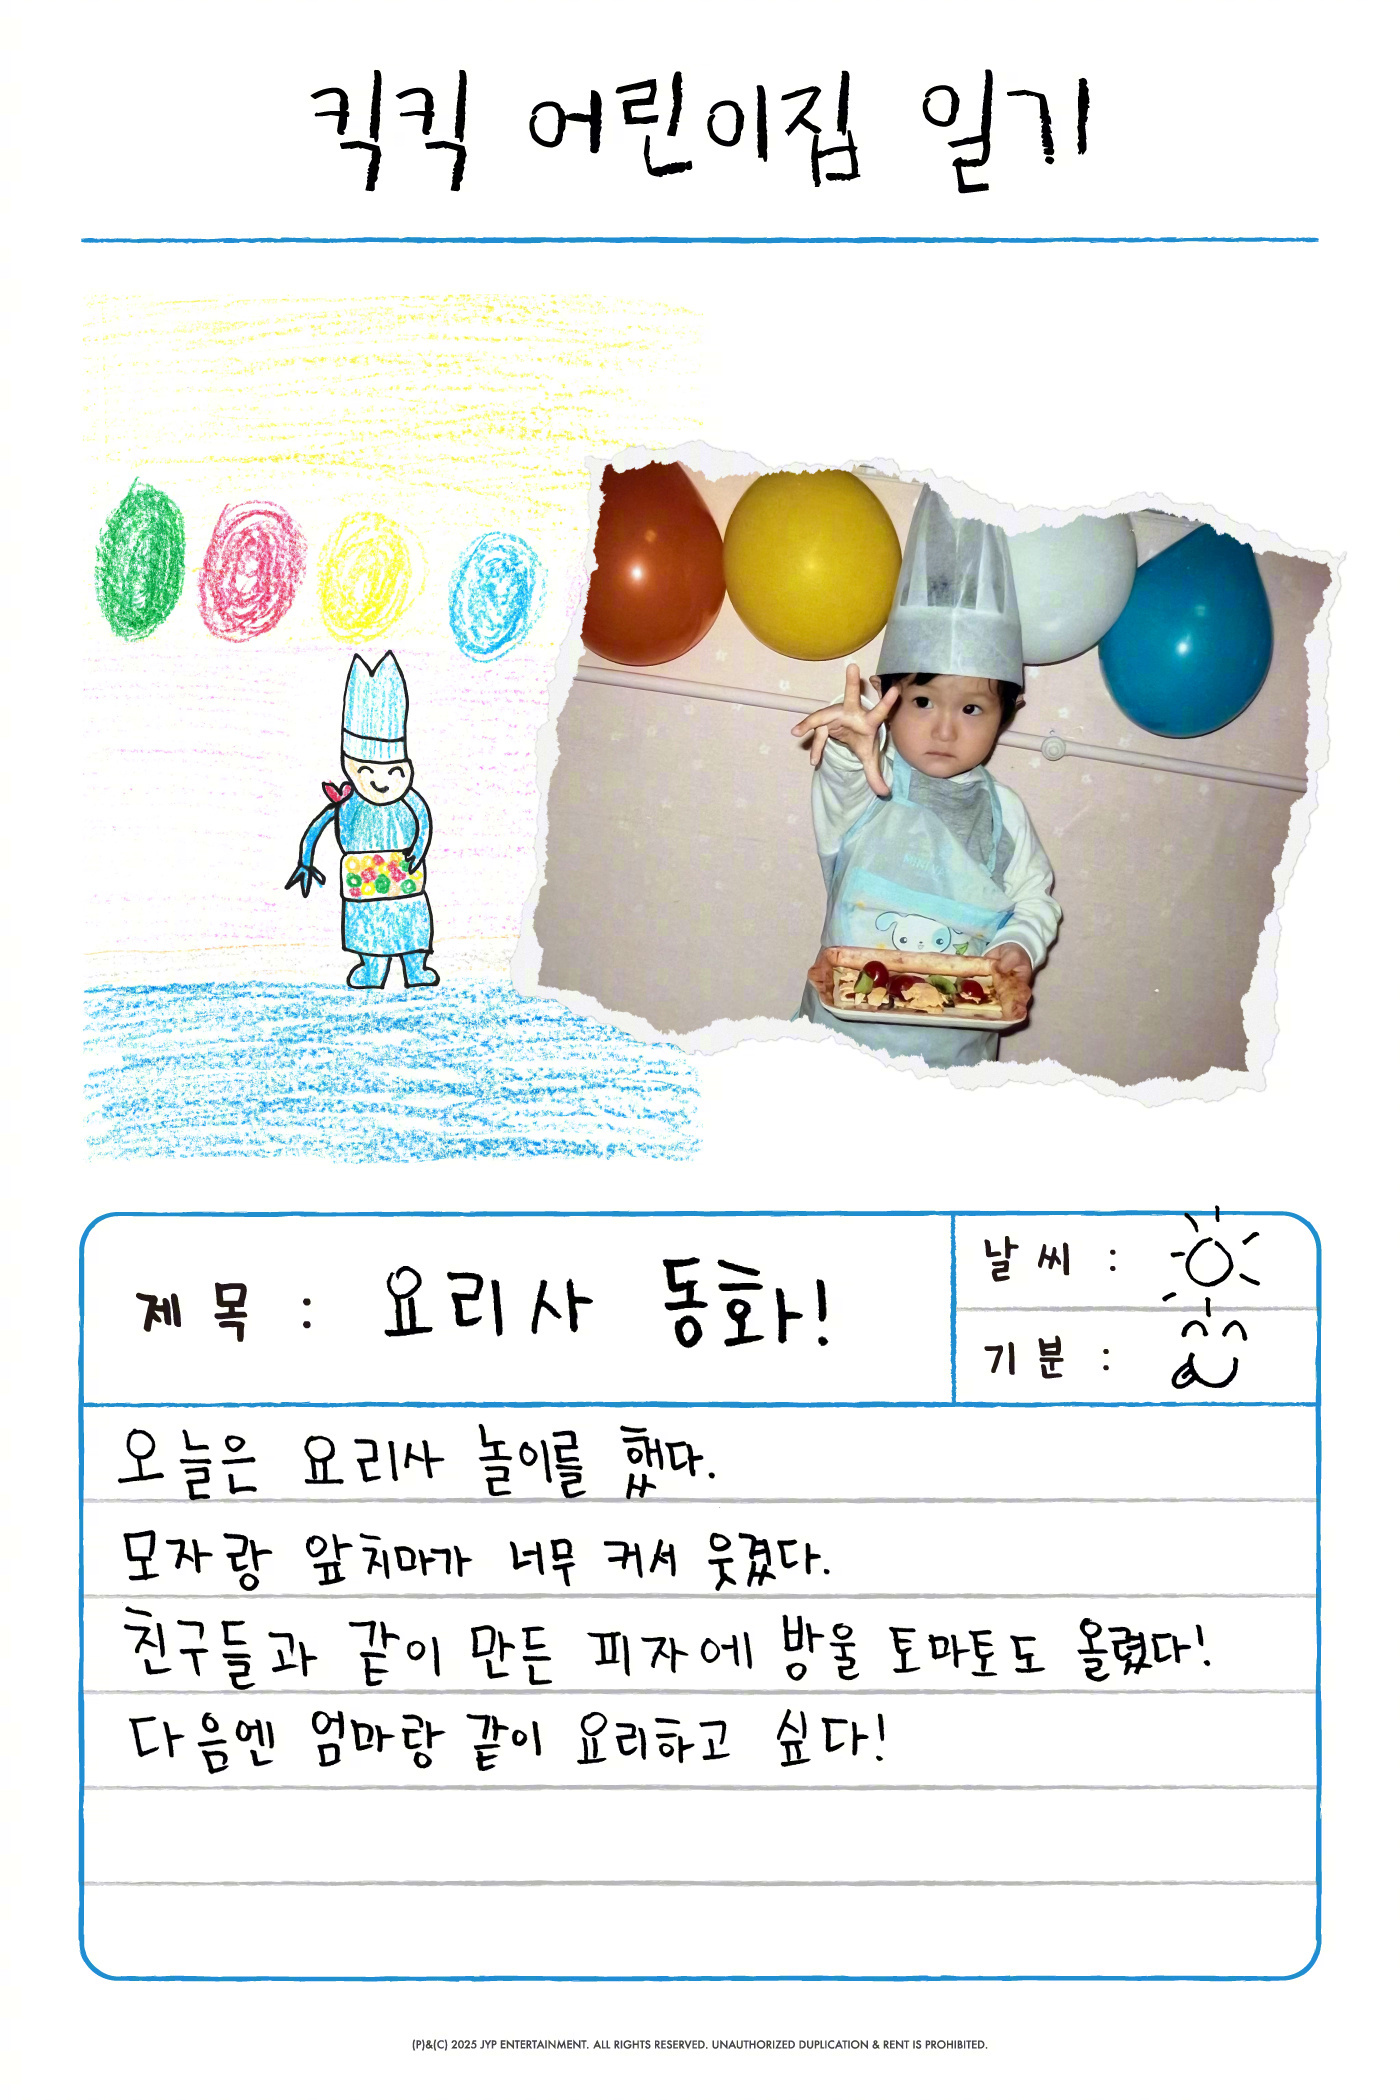 킥킥 어린이집 일기
제목 : 요리사 동화!
날씨 :
기분 :
오늘은 요리사 놀이를 했다.
모자랑 앞치마가 너무 커서 웃겼다.
친구들과 같이 만든 피자에 방울 토마토도 올렸다!
다음엔 엄마랑 같이 요리하고 싶다!
(P)&(C) 2025 JYP ENTERTAINMENT. ALL RIGHTS RESERVED. UNAUTHORIZED DUPLICATION & RENT IS PROHIBITED.